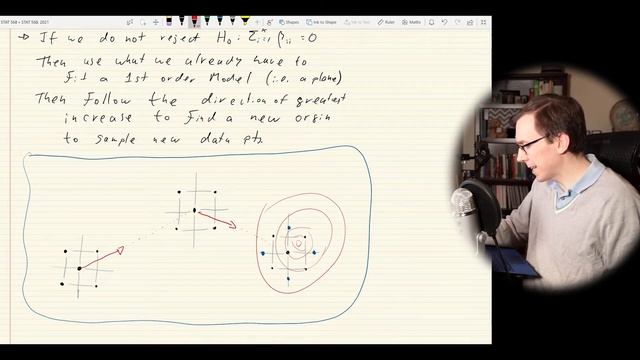 STAT 568 > STAT 568, 2021
Shapes
Ink to Shape
Ink to Text
Maths
→ If we do not reject H₀: Σᵢ₌₁ᵏ βᵢᵢ = 0
Then use what we already have to
fit a 1st order Model (i.e. a plane)
Then follow the direction of greatest
increase to find a new origin
to sample new data pts.